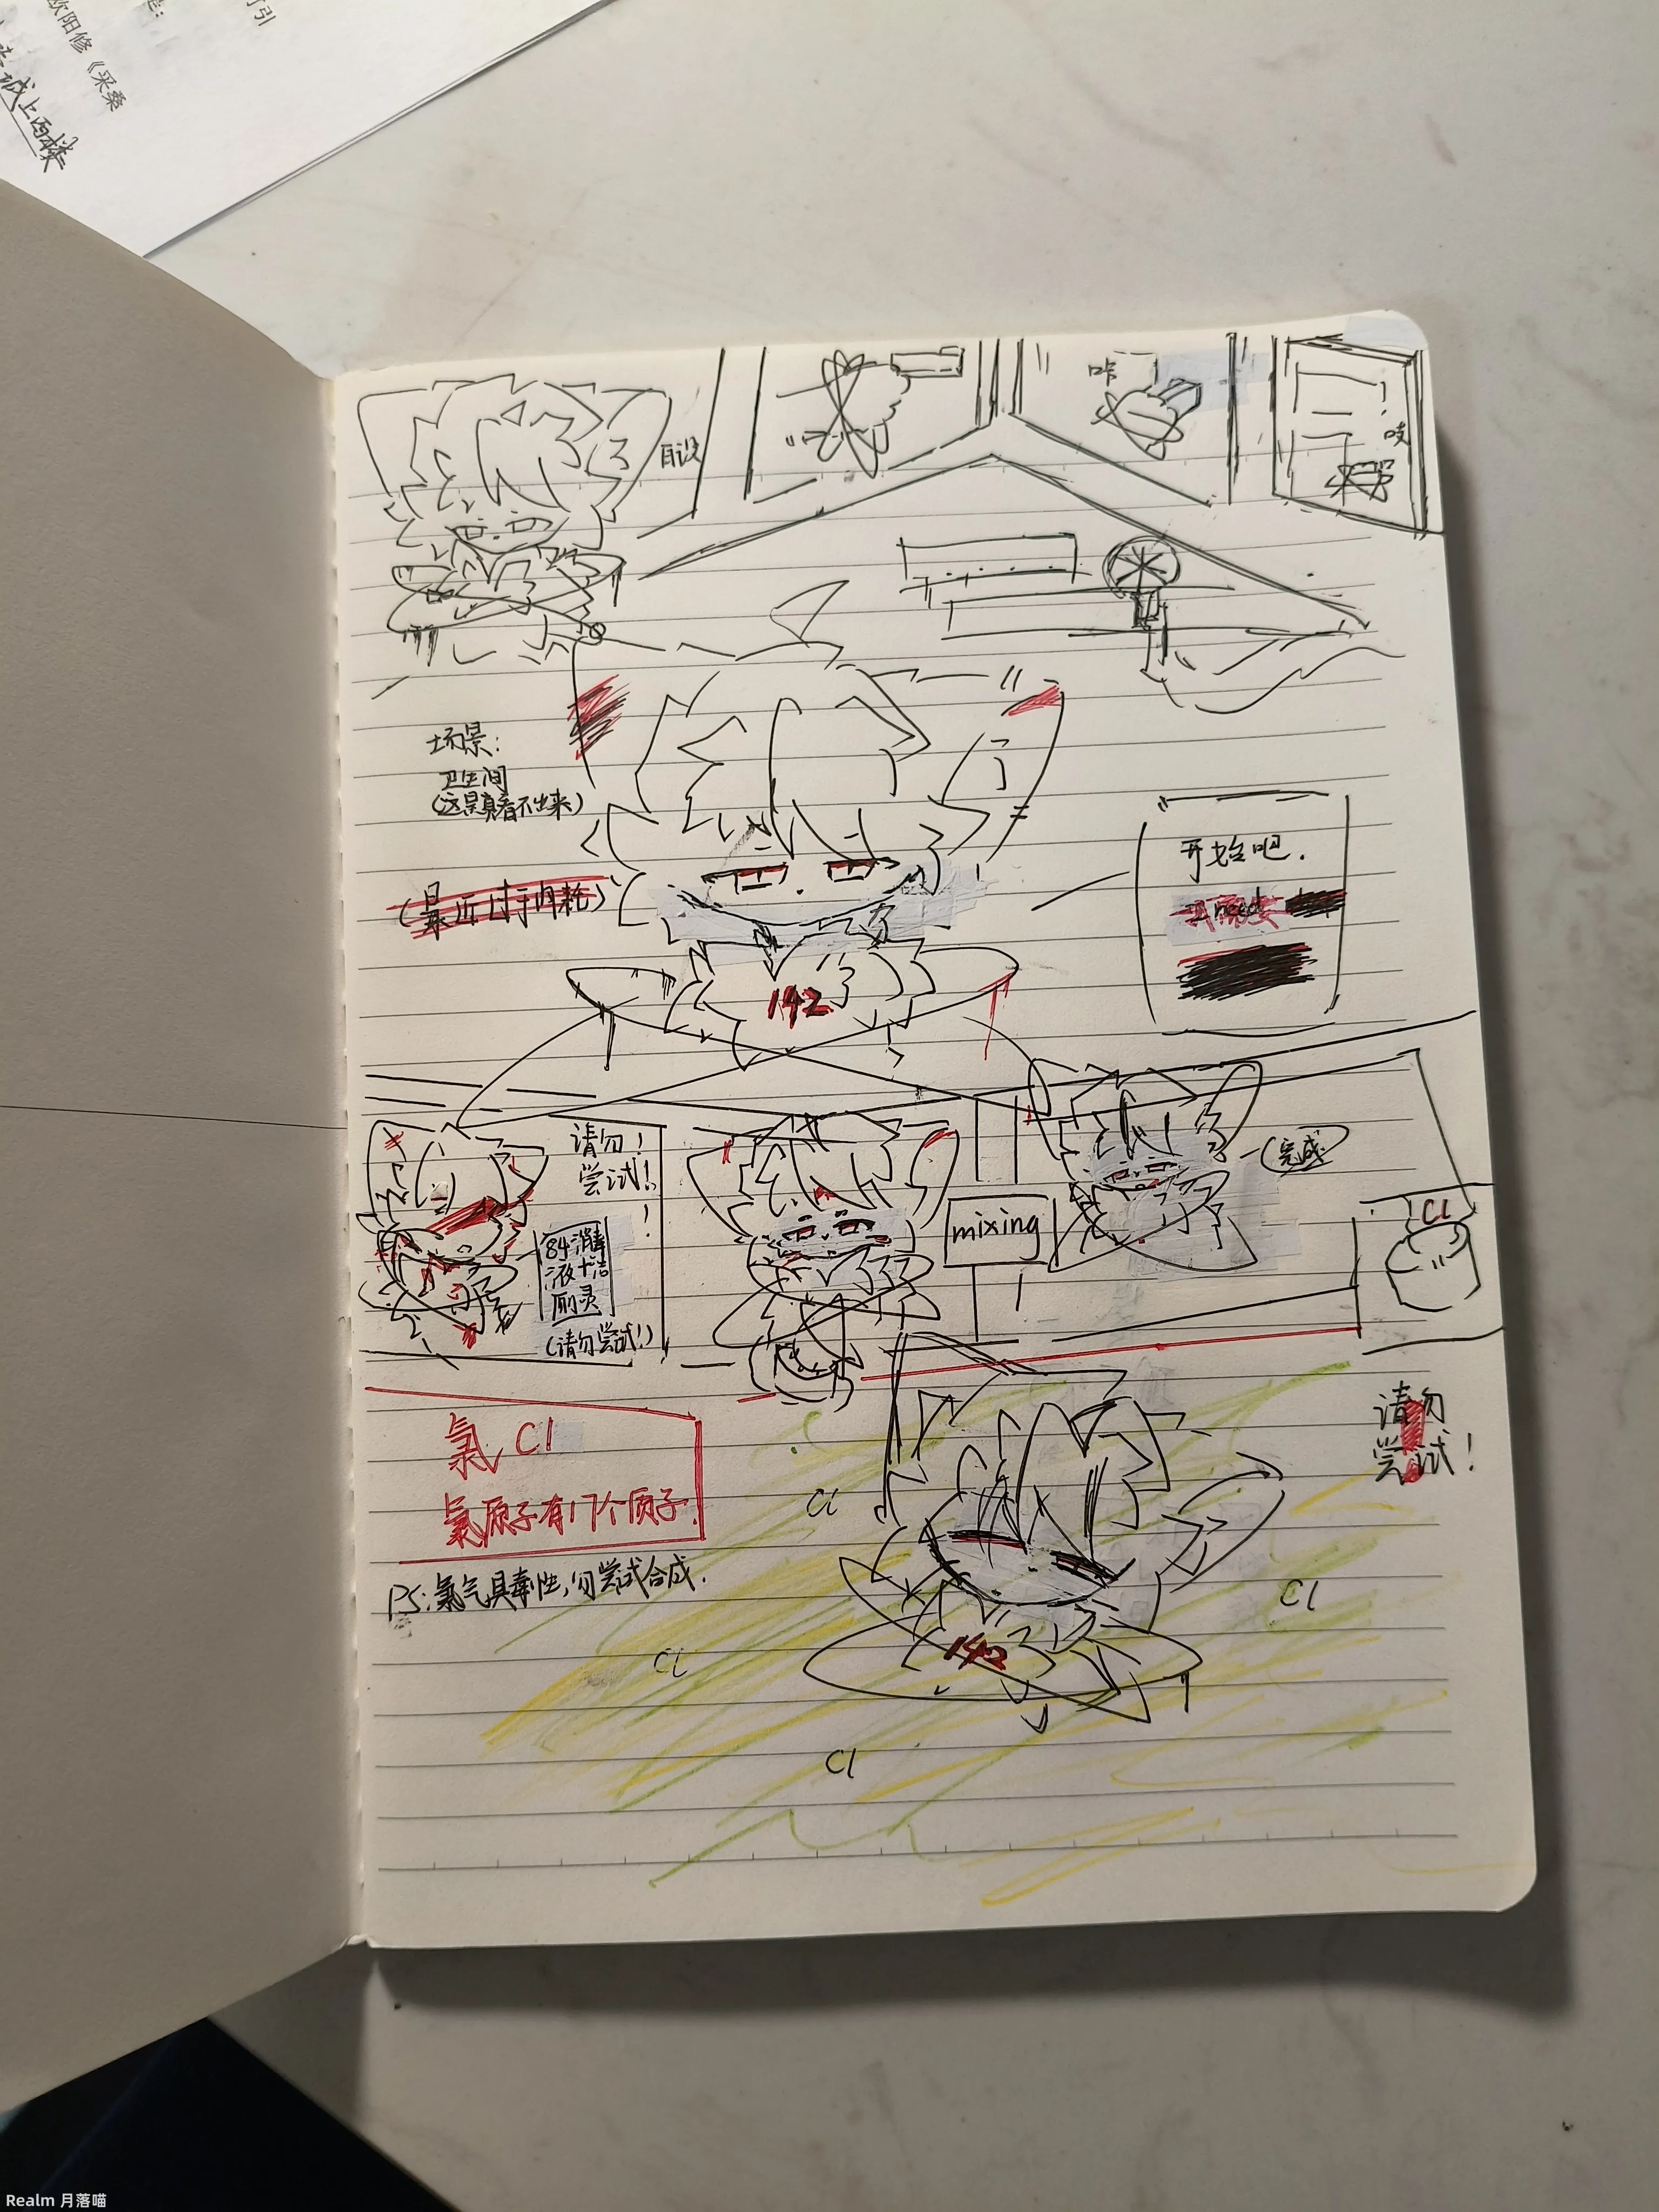 欧阳修《采桑
城上西楼
自设
咔
吱
场景:
卫生间
(这是真看不出来)
(最近过于内耗)
开始吧.
142
请勿!
尝试!!
!
84消毒
液+洁
厕灵
(请勿尝试!)
mixing
(完成)
Cl
氯 Cl
氯原子有17个质子.
PS:氯气具毒性,勿尝试合成.
请勿
尝试!
Cl
Cl
Cl
142
Cl
Realm 月落喵